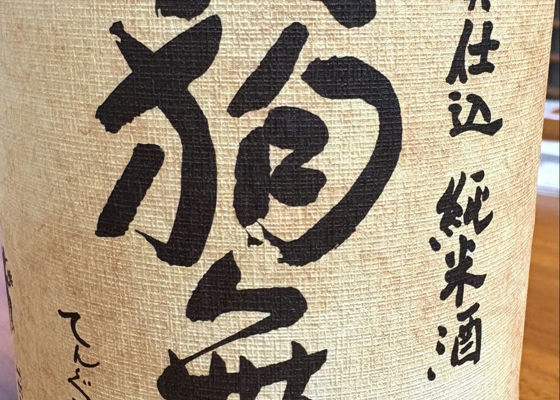 仕込 純米酒
狗舞
てんぐ